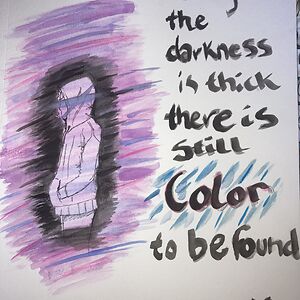 the
darkness
is thick
there is
still
Color
to be found